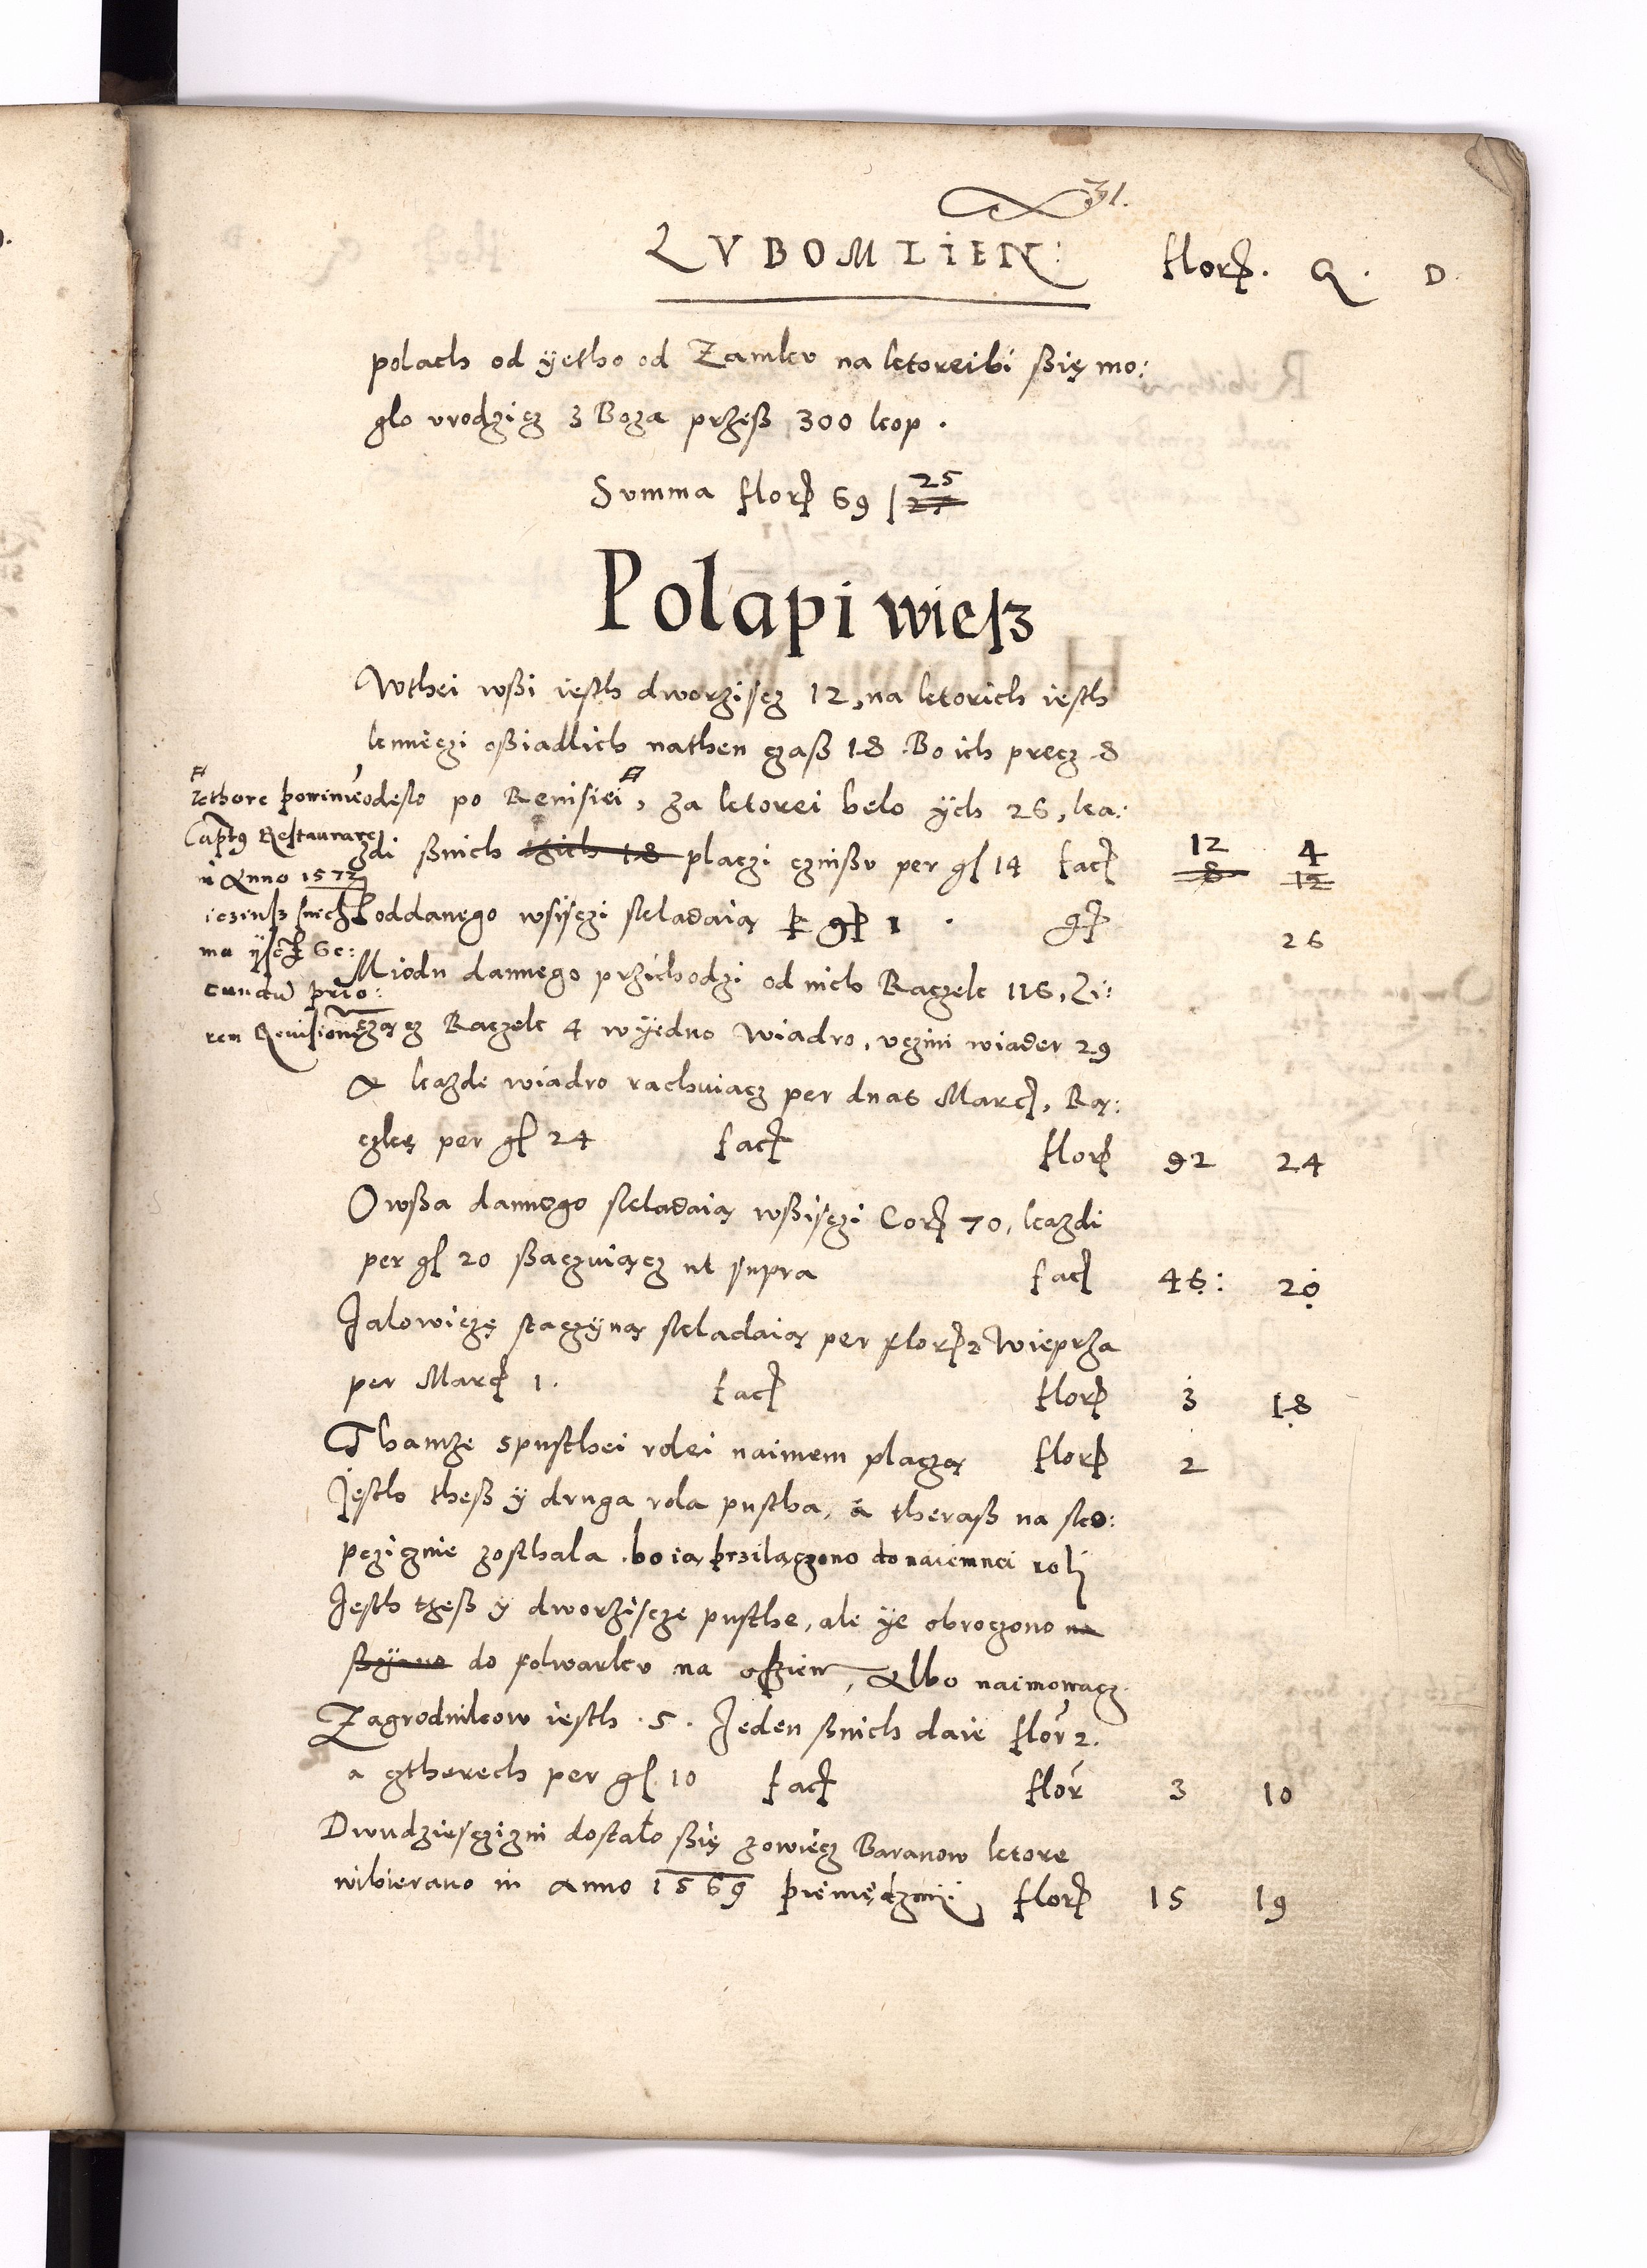 31.
LVBOMLIEN: flor. G. D.
polach od yetho od Zamku na ktoreibi ßię mo:
glo vrodzicz zBoza przeß 300 kop.
Summa flor 69 | 25
Polapi wiesz
Wthei wßi iesth dworziscz 12, na ktorich iesth
kmieczi oßiadlich nathen czaß 18. Bo ich precz 8
odeslo po Revisiei, za ktorei belo ych 26, ka:
zdi ßnich tzich 18 placzi czinßu per gl 14 fac 12 4
8 12
Poddanego wsisczi skladaią p gr 1 . gr 26
kthore powinie
Captus Restaurare
in Anno 1572
iezinsz snich
ma ysc Se:
cundu prio:
rem Revisione
Miodu dannego przichodzi od nich Raczek 116, Li:
czącz Raczek 4 wyedno wiadro, vczini wiader 29
A kazde wiadro rachuiacz per duas Marc, Rą:
czkę per gl 24 fac flor 92 24
Owßa dannego skladaią wßisczi Cor 70, kazdi
per gl 20 ßaczuiącz ut supra fac 46: 20
Jalowiczę staczyną skladaią per flor 2 Wieprza
per Marc 1. fac flor 3 18
Thamze spusthei rolei naimem placzą flor 2
Jesth theß y druga rola pustha, a theraß na sko:
pczicznie zosthala. bo ią przilączono do naiemnei roli
Jesth tzeß y dworziscze pusthe, ale ye obroczono na
do folwarku na oßiew, Albo naimowacz.
Zagrodnikow iesth .5. Jeden ßnich daie flor 2.
a cztherech per gl 10 fac flor 3 10
Dwudziesczizni dostalo ßię zowiecz Baranow ktore
wibierano in Anno 1569 pieniędzmi flor 15 19